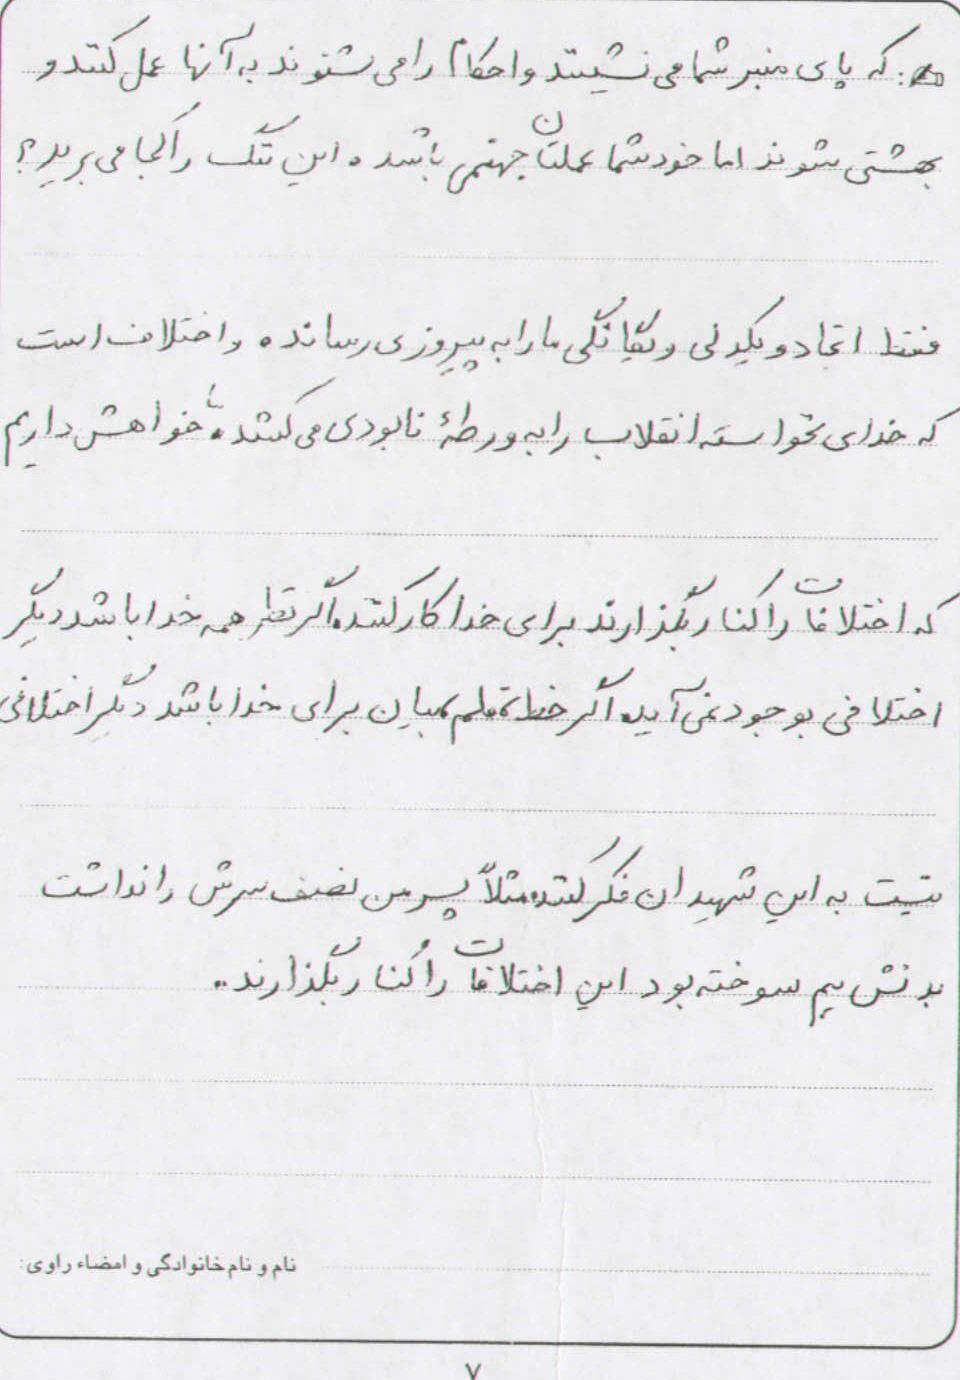 که پای منبر شما می نشینند و احکام را می شنوند به آنها عمل کنند و
بهشتی شوند اما خود شما عملتان جهنمی باشد. این ننگ را کجا می برید؟
فقط اتحاد و یکدلی و یگانگی ما را به پیروزی رسانده و اختلاف است
که خدای نخواسته انقلاب را به ورطهٔ نابودی می کشد. خواهش داریم
که اختلافات را کنار بگذارند برای خدا کار کنند. اگر نظر همه خدا باشد دیگر
اختلافی بوجود نمی آید. اگر خط، قلم، بیان برای خدا باشد دیگر اختلافی
نیست به این شهیدان فکر کنند. مثلاً پسر من نصف سرش را نداشت
بدنش هم سوخته بود این اختلافات را کنار بگذارند..
نام و نام خانوادگی و امضاء راوی:
۷